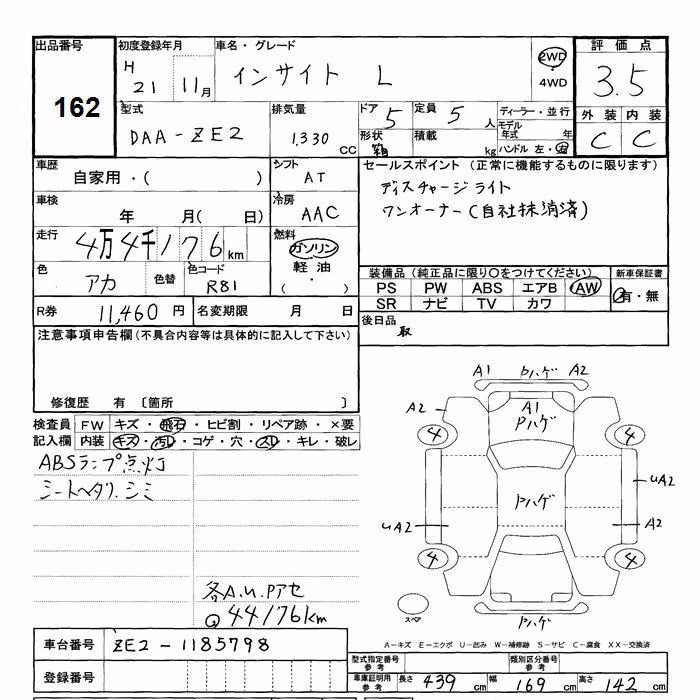 出品番号 初度登録年月 車名・グレード 評価点
162 H 21 11月 インサイト L 2WD ・ 4WD 3.5
型式 排気量 ドア 5 定員 5 人 ディーラー・並行 外装 内装
DAA-ZE2 1,330 CC 形状 箱 積載 kg モデル年式 年 ハンドル 左・右 C C
車歴 シフト セールスポイント (正常に機能するものに限ります)
自家用・( ) AT ディスチャージライト
車検 冷房 ワンオーナー(自社抹消済)
年 月( 日) AAC
走行 燃料
4万4千176km ガソリン
色 色替 色コード 軽油 装備品 (純正品に限り○をつけてください) 新車保証書
アカ R81 ( ・ ) PS PW ABS エアB AW 有・無
SR ナビ TV カワ
R券 11,460 円 名変期限 月 日 後日品
取
注意事項申告欄 (不具合内容等は具体的に記入して下さい)
修復歴 有 〔箇所 〕
検査員 FW キズ・飛石・ヒビ割・リペア跡・×要
記入欄 内装 キズ・汚レ・コゲ・穴・スレ・キレ・破レ
ABSランプ点灯
シートヘタリ.シミ
各A.U.Pアセ
Q 44176km
A1 Pハゲ A2
A2 A1
Pハゲ
4 4
Pハゲ UA2
UA2 A2
4 4
スペア Pハゲ
A-キズ E-エクボ U-凹み W-補修跡 S-サビ C-腐食 XX-交換済
車台番号 ZE2-1185798
型式指定番号 参考 類別区分番号 参考
登録番号 車庫証明用 参考 長さ 439 cm 幅 169 cm 高さ 142 cm